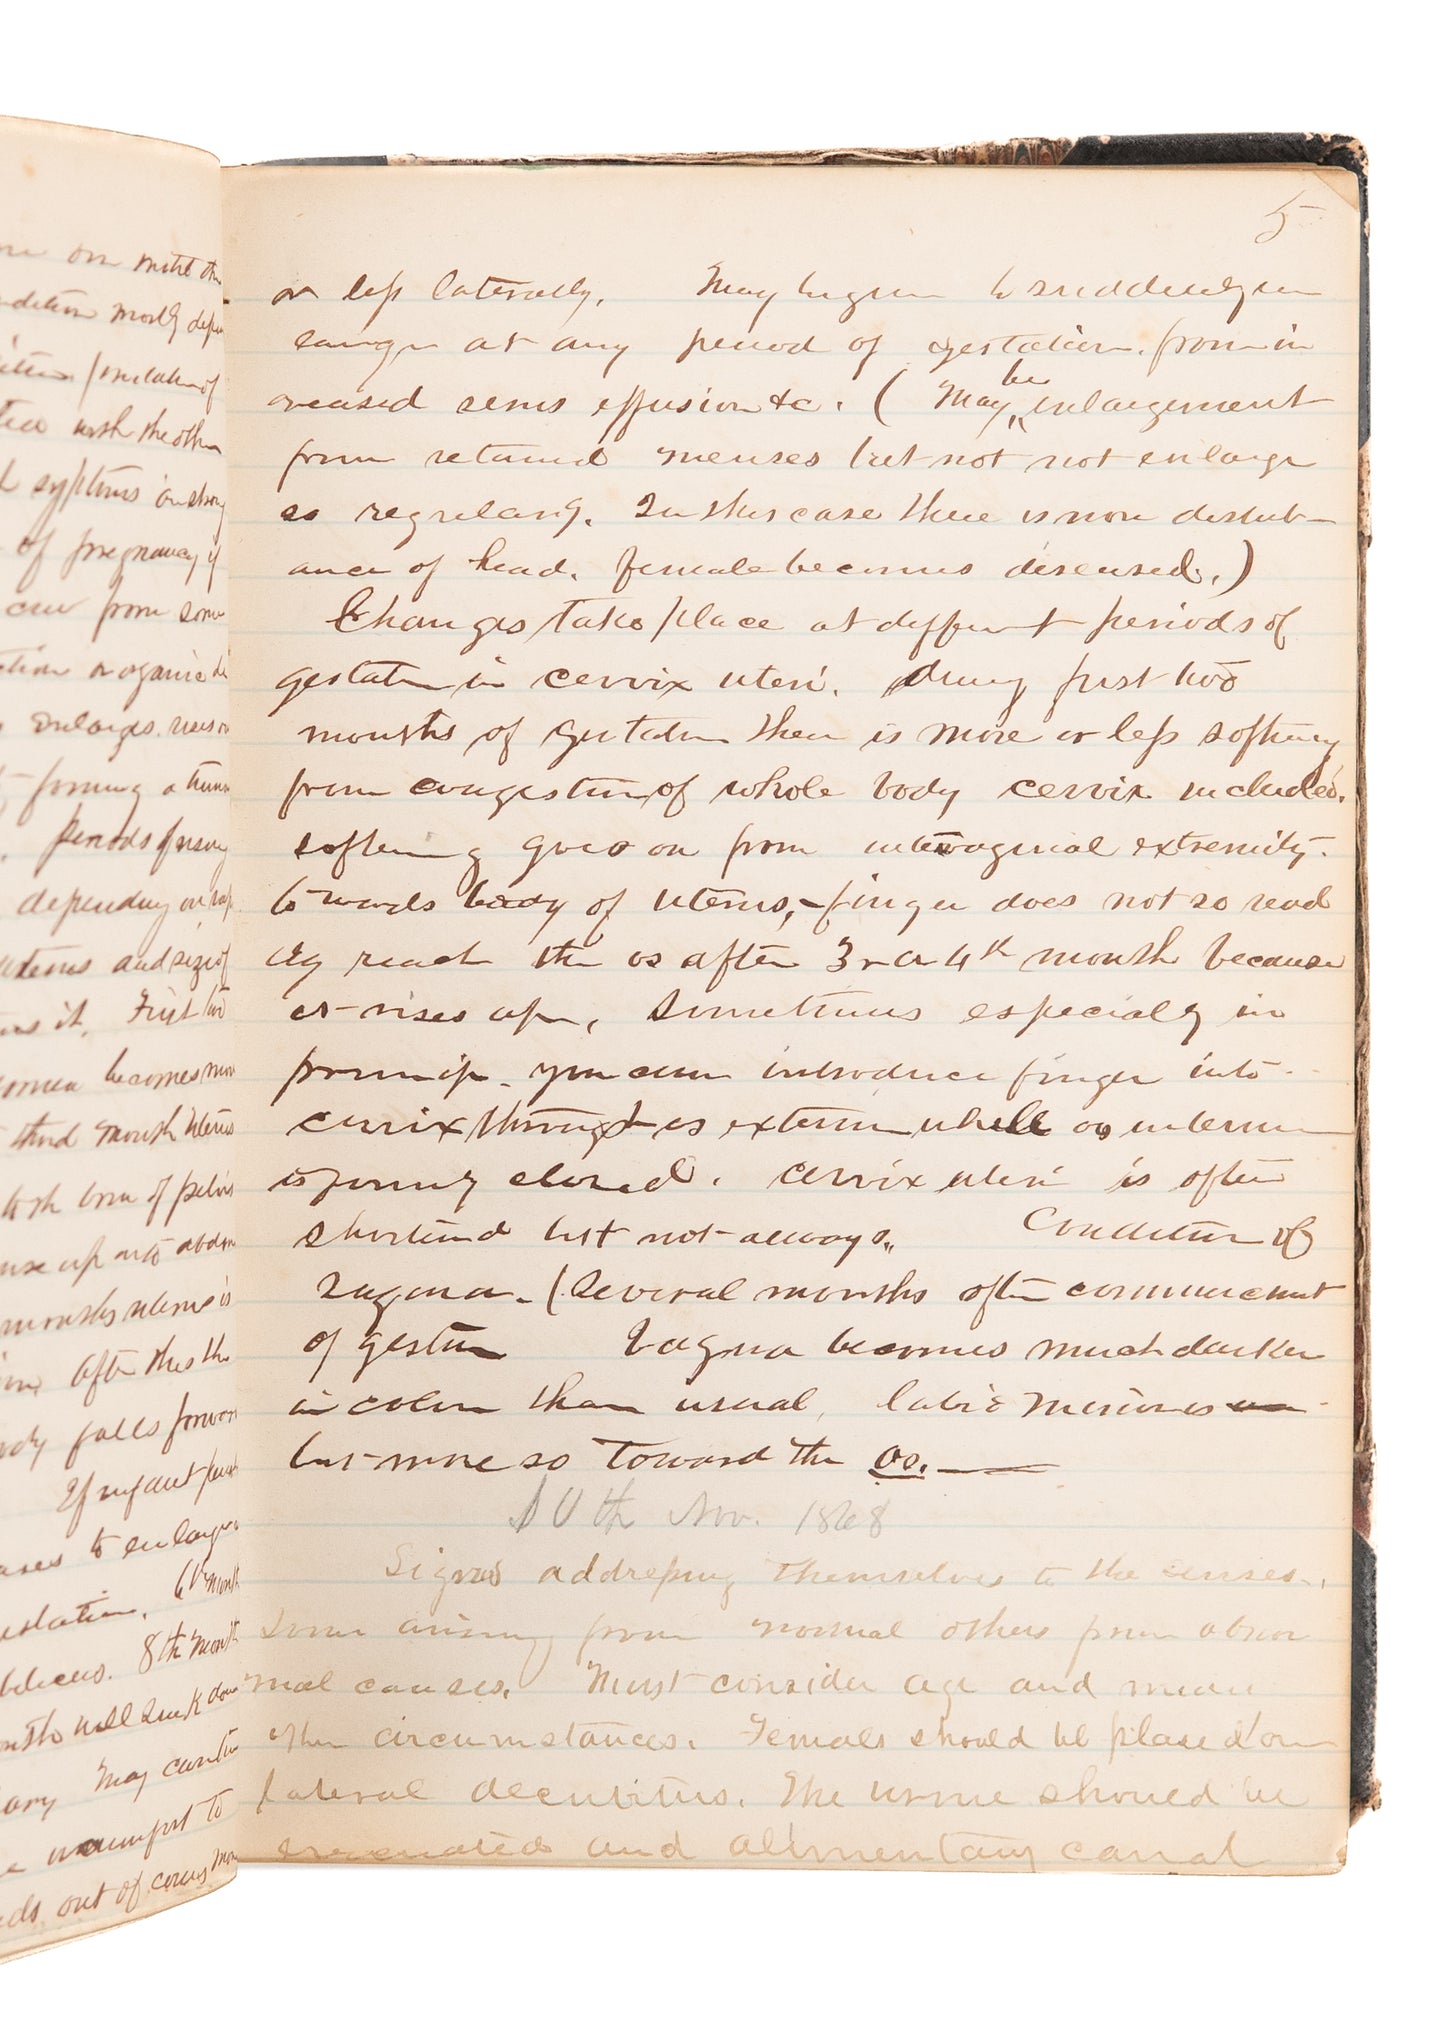 one on
mostly
with the other
of pregnancy if
from some
or organic
enlarges
forming a
Periods of
depending on
uterus and size of
it. First two
becomes more
third month uterus
of pelvis
up into
months uterus is
After this the
falls forward
If
to enlarge
6th month
8th month
will sink down
May
to
out of
5
or less laterally. May begin to suddenly en
large at any period of gestation from in
creased serus effusion &c. ( May be enlargement
from retained menses but not not enlarge
so regularly. In this case there is more disturb-
ance of head. female becomes diseased.)
Changes take place at different periods of
gestation in cervix uteri. During first two
months of gestation there is more or less softning
from congestion of whole body cervix included.
softening goes on from intravaginal extremity
towards body of uterus, - finger does not so read
ily reach the os after 3 or 4th month because
it rises up, Sometimes especially in
you can introduce finger into
cervix through os externum while os internum
is firmly closed. Cervix uteri is often
shortend but not always. Condition of
Vagina. (Several months after commencement
of Vagina becomes much darker
in color than usual, labia
but more so toward the os.
10th Nov. 1868
Signs addressing themselves to the senses.
Some arising from normal others from abnor
mal causes. Must consider age and many
other circumstances. Female should be placed on
lateral decubitus. The urine should be
evacuated and alimentary canal